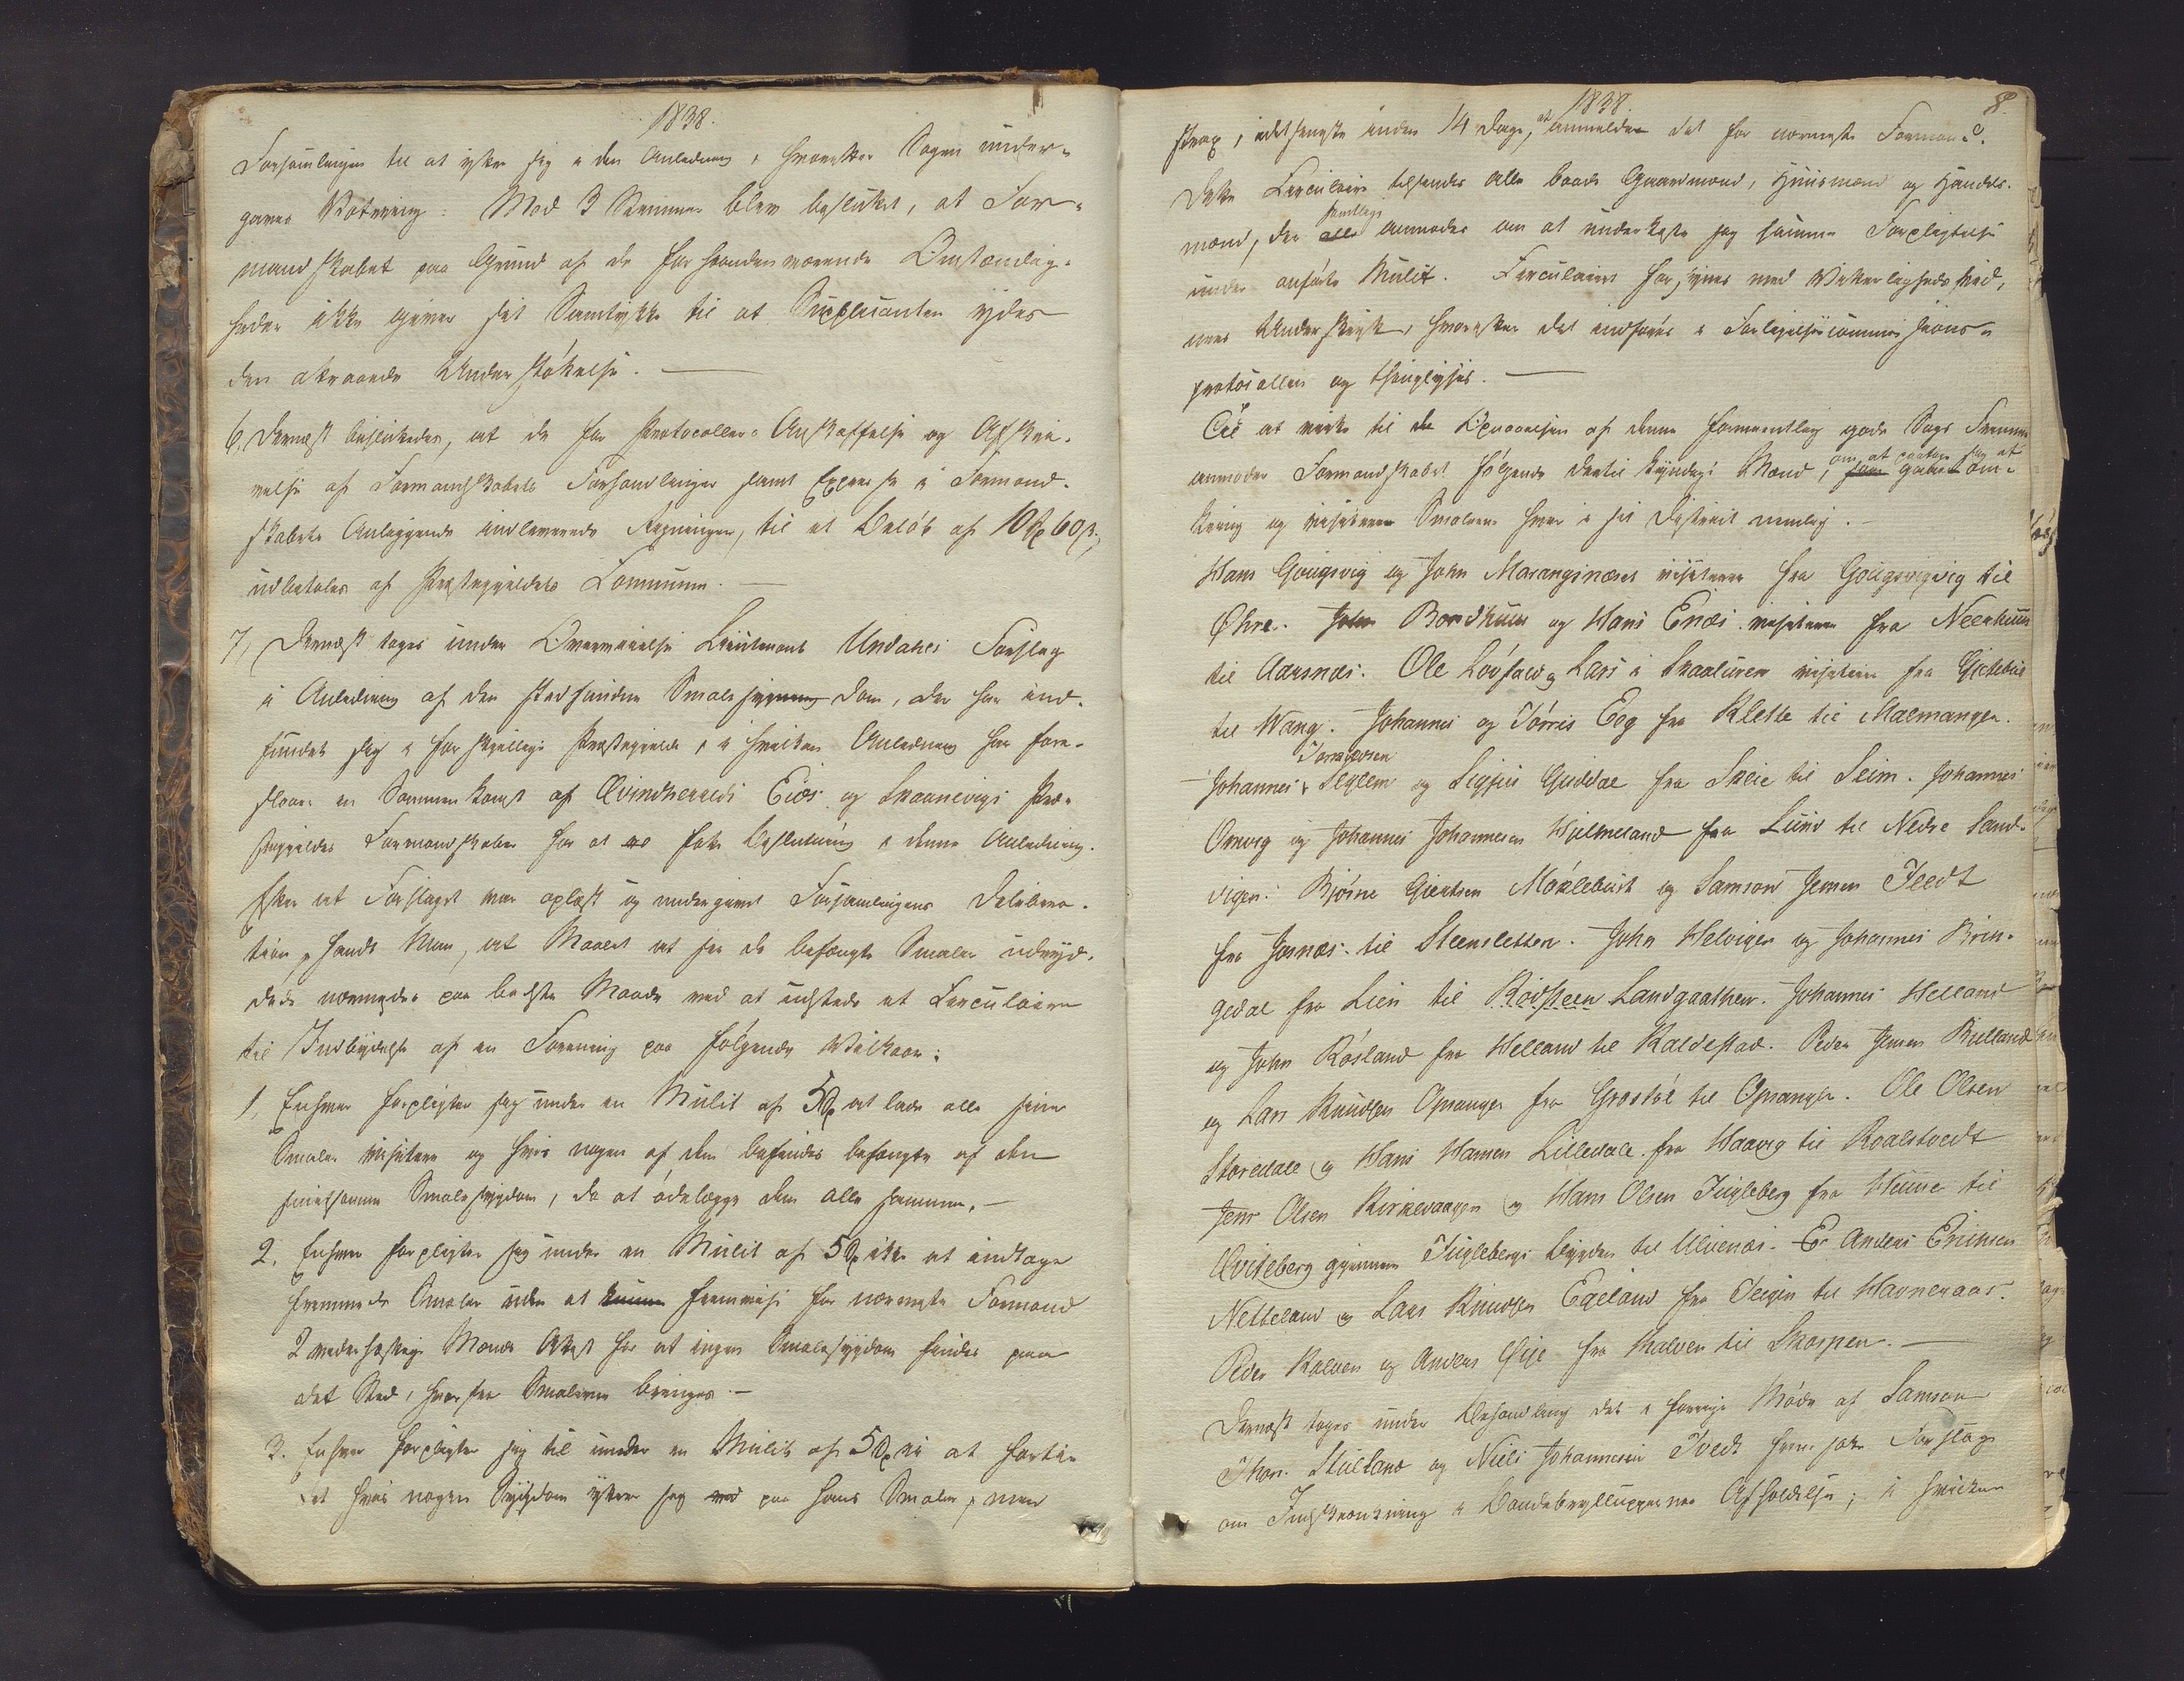 1838.
Forsamlingen til at ytre sig i den Anledning, hvorefter Sagen under-
gaves Votering: Med 3 Stemmer blev besluttet, at For-
mandskabet paa Grund af de forhaandenværende Omstændig-
heder ikke giver sit Samtykke til at Supplicanten ydes
den attraaede Understøttelse. —
6, Dernæst besluttedes, at de for Protocollers Anskaffelse og Afskri-
velse af Formandskabets Forhandlinger samt Expresse i Formand-
skabets Anliggende indleverede Regninger, til et Beløb af 10 Spd 60 s.,
udbetales af Præstegjeldets Commune. —
7, Dernæst toges under Overveielse Lieutenant Undahls Forslag
i Anledning af den stedfindende Smalesygdom, der har ind-
fundet sig i forskjellige Præstegjelde, i hvilken Anledning han fore-
slaaer en Sammenkomst af Qvindherreds Eids og Skaanevigs Præ-
stegjeldes Formandskaber for at tage Beslutning i denne Anledning.
Efter at Forslaget var oplæst og undergivet Forsamlingens Delibera-
tion, fandt Man, at Maalet at faae de befængte Smaler udryd-
dede nærmedes paa bedste Maade ved at udstede et Circulaire
til Indbydelse af en Forening paa følgende Vilkaar:
1, Enhver forpligter sig under en Mulct af 5 Spd at lade alle sine
Smaler visitere og hvis nogen af dem befindes befængte af den
smitsomme Smalesygdom, da at ødelægge dem alle sammen. —
2. Enhver forpligter sig under en Mulct af 5 Spd ikke at indtage
fremmede Smaler uden at kunne fremvise for nærmeste Formand
2 vederhæftige Mænds Attest for at ingen Smalesygdom findes paa
det Sted, hvorfra Smalerne bringes. —
3. Enhver forpligter sig til under en Mulct af 5 Spd ei at fortie
det hvis nogen Sygdom ytrer sig ved paa hans Smaler, men
1838. 8.
strax, i det seneste inden 14 Dage, at anmelde det for nærmeste Formand.
Dette Circulaire tilsendes alle baade Gaardmænd, Huusmænd og Handels-
mænd, der alle samtlige anmodes om at underkaste sig samme Forpligtelse
under anførte Mulct. Circulairet forsynes med Vitterligheds Vid-
ners Underskrift, hvorefter det indføres i Forligelsescommissions-
protocollen og thinglyses. —
Til at virke til de Opnaaelsen af denne formeentlig gode Sags Fremme
anmoder Formandskabet følgende dertil kyndige Mænd, om at paatage sig at om-
kring og visitere Smalerne hver i sit District nemlig. —
Hans Gougsvig og John Maranginæset visiterer fra Gougsvigvig til
Øhre. John Bondhuus og Hans Enæs visiterer fra Neerhuus
til Aarsnæs. Ole Løvfald og Lars i Skaaluren visiterer fra Gjetebøe
til Vang. Johannes og Torris Eeg fra Klette til Malmanger.
Johannes Torrisen Seglem og Sigfus Guddal fra Skeie til Seim. Johannes
Omvig og Johannes Johannesen Hielmeland fra Lund til Nedre Sand-
vigen. Bjørne Giertsen Møklebust og Samson Jensen Tvedt
fra Jersnæs til Steensletten. John Helvigen og Johannes Brin-
gedal fra Lien til Rødsteen Landgaathen. Johannes Helland
og John Røsland fra Helland til Kaldestad. Peder Jensen Bielland
og Lars Knudsen Opsanger fra Grostøl til Opsanger. Ole Olsen
Storedale og Hans Hansen Lilledale fra Haavig til Roalstvedt
Jens Olsen Kirkevaagen og Hans Olsen Fugleberg fra Huuse til
Qviteberg gjennem Fuglebergs Bygden til Ulvenæs. Anders Erichsen
Netteland og Lars Knudsen Egeland fra Teigen til Havneraas.
Peder Kalven og Anders Gye fra Kalven til Skorpen. —
Dernæst toges under Behandling det i forrige Møde af Samson
Thors. Stueland og Niels Johannesen Tvedt fremsatte Forslag
om Indskrænkning i Bondebryllupernes Afholdelse; i hvilken